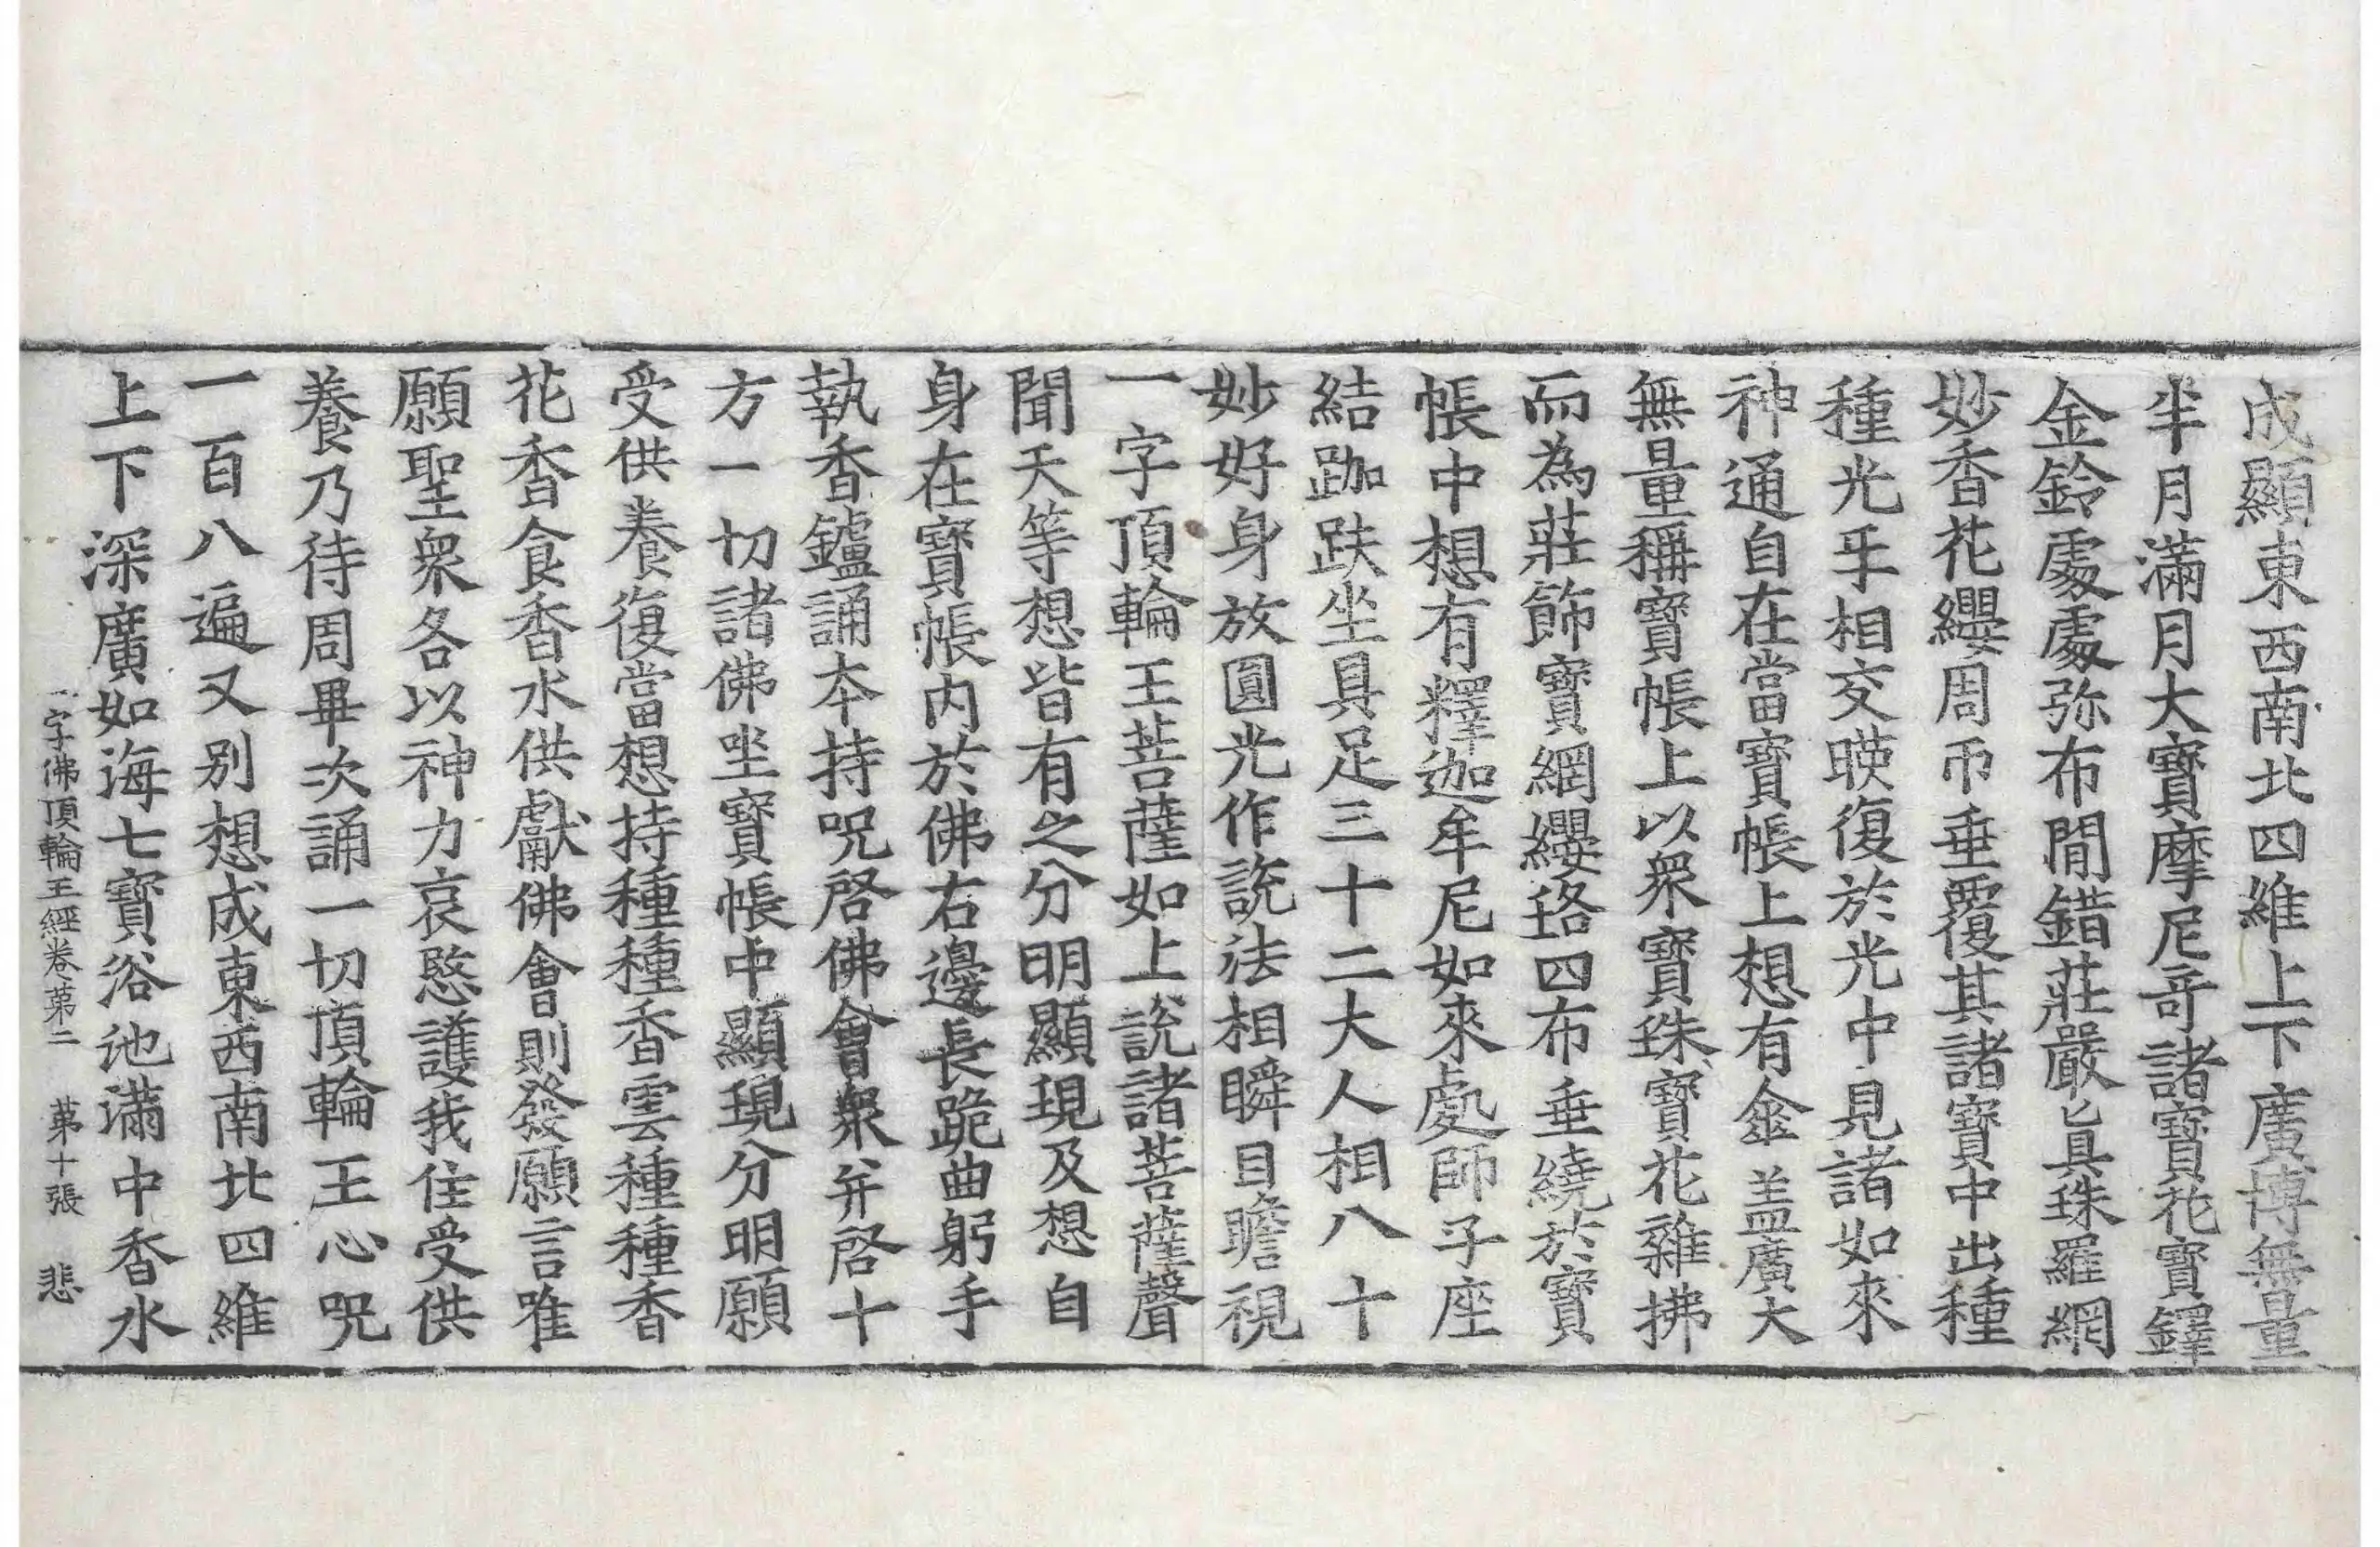 成顯東西南北四維上下廣博無量
半月滿月大寶摩尼哥諸寶花寶鐸
金鈴處處弥布閒錯莊嚴巳具珠羅網
妙香花纓周帀垂覆其諸寶中出種
種光乎相交暎復於光中見諸如來
神通自在當寶帳上想有傘盖廣大
無量稱寶帳上以衆寶珠寶花雜拂
而為莊飾寶網纓珞四布垂繞於寶
帳中想有釋迦牟尼如來處師子座
結跏趺坐具足三十二大人相八十
妙好身放圓光作說法相瞬目瞻視
一字頂輪王菩薩如上說諸菩薩聲
聞天等想皆有之分明顯現及想自
身在寶帳内於佛右邊長跪曲躬手
執香鑪誦夲持呪啓佛會衆并啓十
方一切諸佛坐寶帳中顯現分明願
受供養復當想持種種香雲種種香
花香食香水供獻佛會則發願言唯
願聖衆各以神力哀愍護我住受供
養乃待周畢次誦一切頂輪王心呪
一百八遍又別想成東西南北四維
上下深廣如海七寶浴池滿中香水
一字佛頂輪王經卷苐二 苐十張 悲